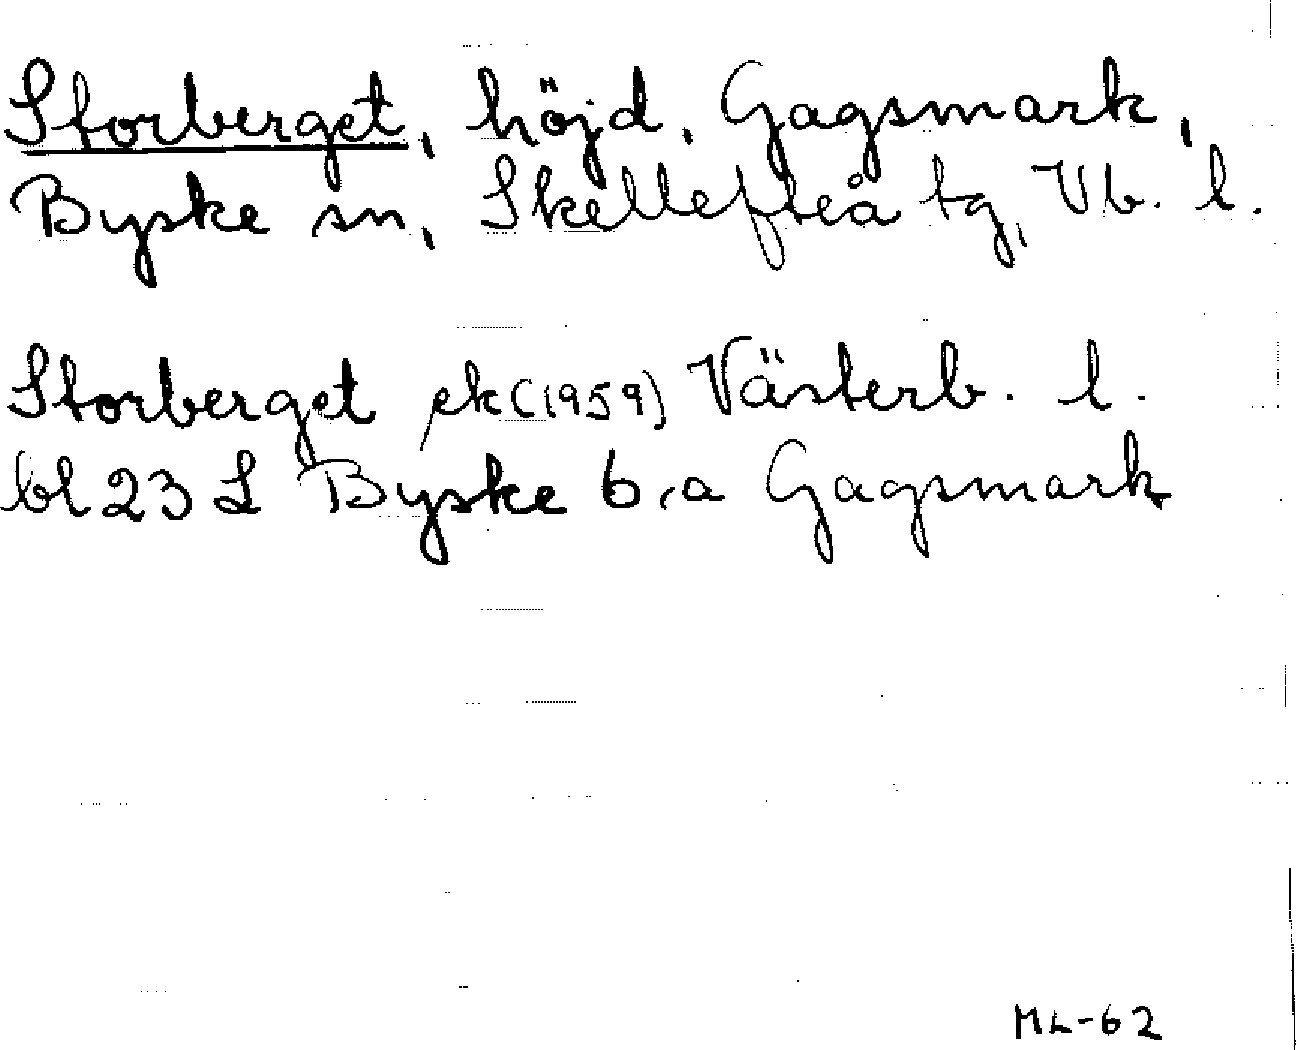 Storberget, höjd, Gagsmark,
Byske sn, Skellefteå tg, Vb. l.
Storberget ek (1959) Västerb. l.
bl 23 L Byske 6, a Gagsmark
ML-62